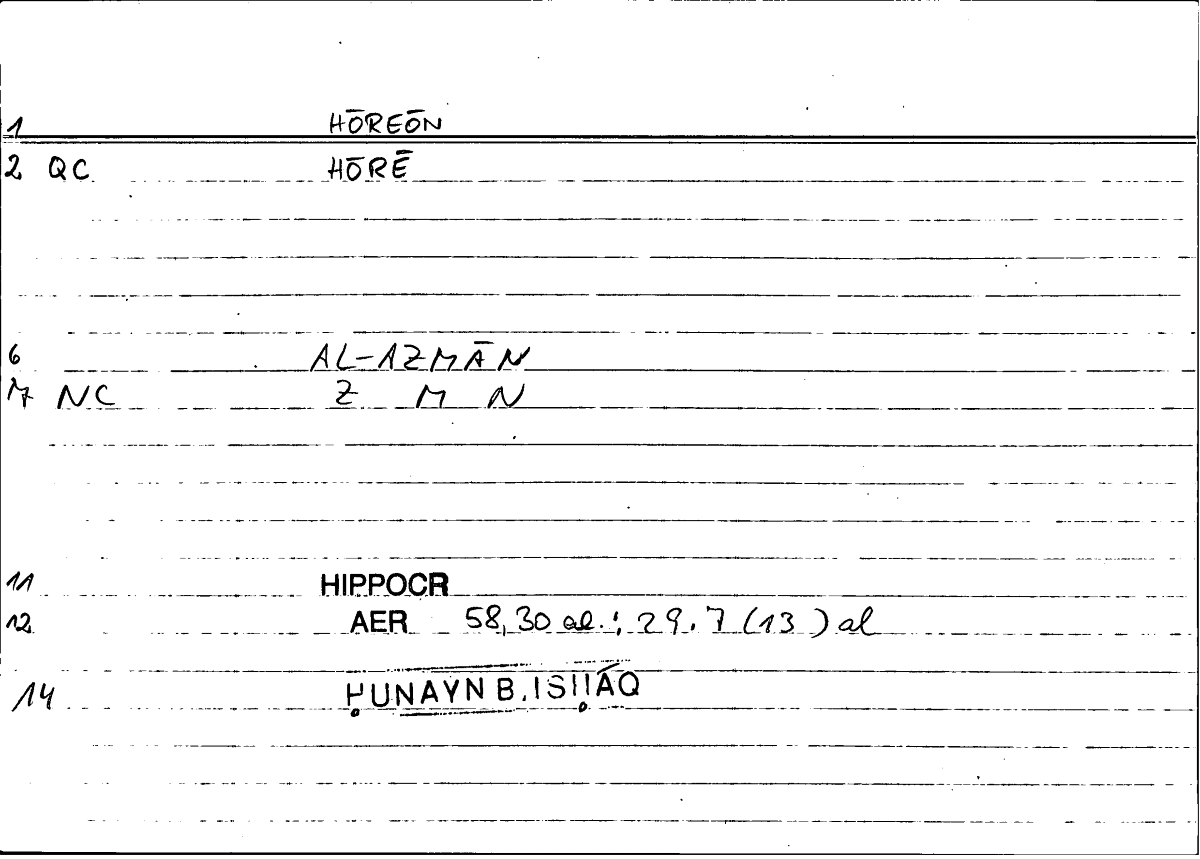 1 HŌREŌN
2 QC HŌRĒ
6 AL-AZMĀN
7 NC Z M N
11 HIPPOCR
12 AER 58,30 al.; 29.7 (13) al
14 ḤUNAYN B. ISḤĀQ